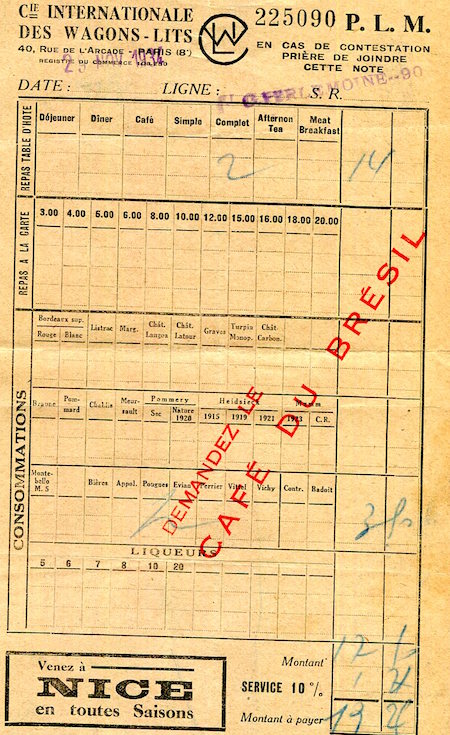 Cie INTERNATIONALE
DES WAGONS-LITS
40, RUE DE L'ARCADE - PARIS (8e)
REGISTRE DU COMMERCE
WL
225090 P. L. M.
EN CAS DE CONTESTATION
PRIÈRE DE JOINDRE
CETTE NOTE
1934
DATE : LIGNE : S. R.
REPAS TABLE D'HÔTE
Déjeuner Dîner Café Simple Complet Afternon Tea Meat Breakfast
2 14
REPAS A LA CARTE
3.00 4.00 5.00 6.00 8.00 10.00 12.00 15.00 16.00 18.00 20.00
CONSOMMATIONS
Bordeaux sup. Rouge Blanc Listrac Marg. Chât. Langoa Chât. Latour Graves Turpin Monop. Chât. Carbon.
Beaune Pommard Chablis Meursault Pommery Sec Nature 1920 Heidsieck 1915 1919 1921 1923 C.R.
Montebello M. S Bières Appol. Pougues Evian Perrier Vittel Vichy Contr. Badoit
LIQUEURS
5 6 7 8 10 20
DEMANDEZ LE
CAFÉ DU BRÉSIL
Venez à
NICE
en toutes Saisons
Montant
SERVICE 10 %
Montant à payer